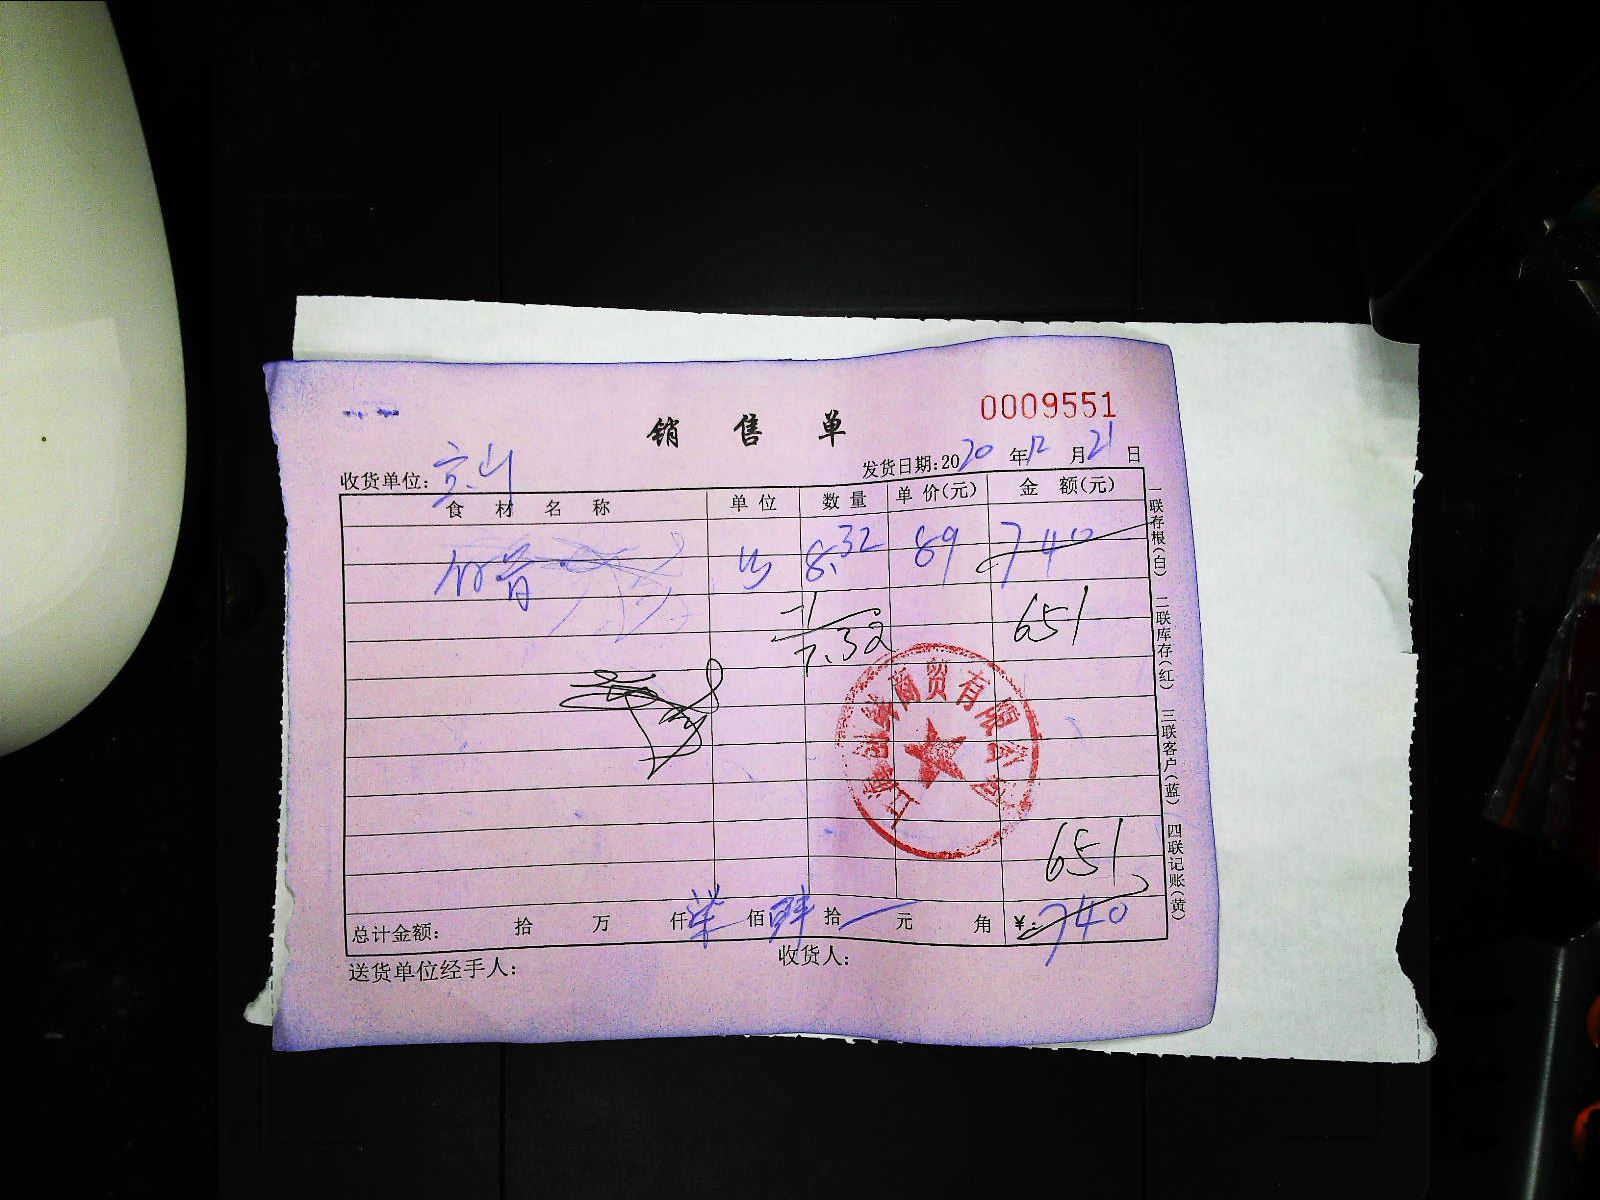 0009551
销 售 单
收货单位: 京山 发货日期:2020 年12 月21 日
食 材 名 称 单 位 数 量 单 价(元) 金 额(元)
8.32 89 740
-1 651
7.32
商贸有限公司
上海
651
总计金额: 拾 万 仟 柒 佰 肆 拾 一 元 角 ¥: 740
送货单位经手人: 收货人:
一联存根(白) 二联库存(红) 三联客户(蓝) 四联记账(黄)